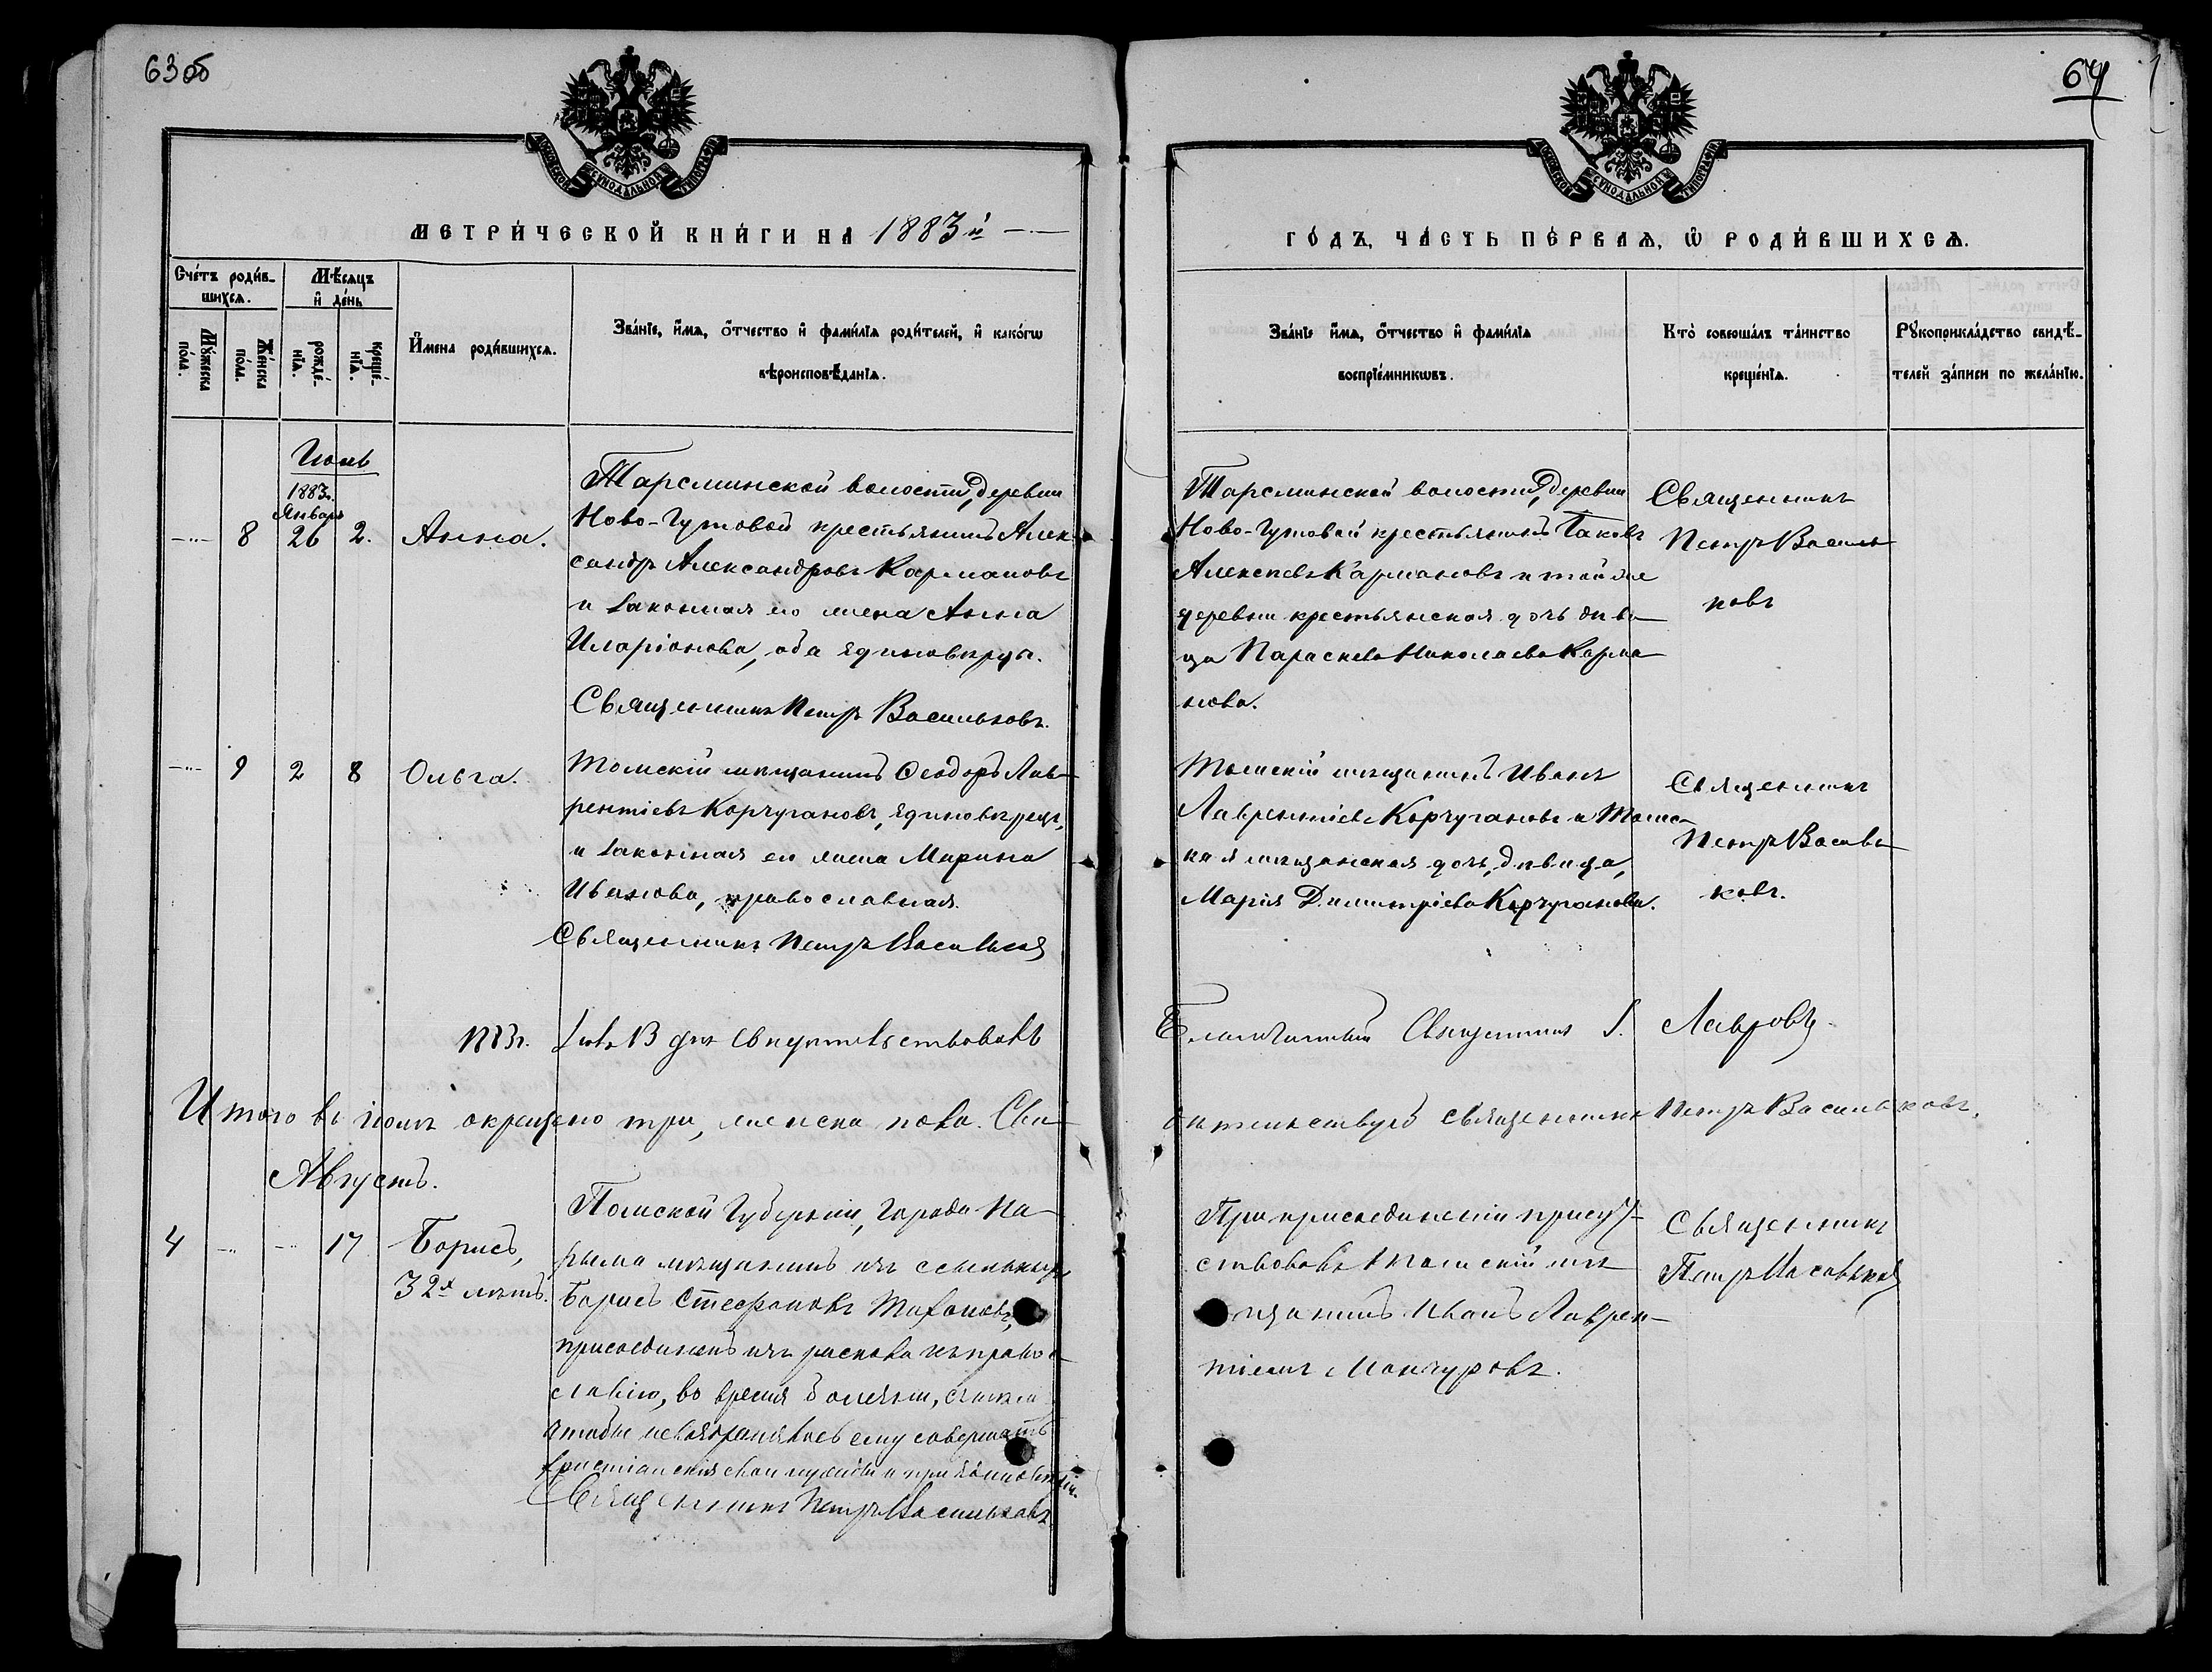 63 об
МОСКОВСКОЙ СѴНОДАЛЬНОЙ ТИПОГРАФІИ
МЕТРИ́ЧЕСКОЙ КНИ́ГИ НА́ 1883 й
Сче́тъ роди́в-
шихсѧ.
Мѣсѧцъ
и҆ де́нь
Мꙋ́жеска
по́ла.
Же́нска
по́ла.
рожде́-
нїѧ.
креще́-
нїѧ.
И҆мена роди́вшихсѧ.
Зва́нїе, и҆́мѧ, ѻ҆́тчество и҆ фами́лїѧ роди́телей, и҆ како́гѡ
вѣроисповѣ́данїѧ.
Июль
1883 г.
Январь
8 26 2. Анна.
Тарсминской волости, деревни
Ново-Гутовой крестьянинъ Алек-
сандръ Александровъ Кармановъ
и законная его жена Анна
Иларіонова, оба единоверцы.
Священникъ Петръ Васильковъ.
9 2 8 Ольга.
Томскій мѣщанинъ Ѳеодоръ Лав-
рентіевъ Корчугановъ, единовѣрецъ,
и законная его жена Марина
Иванова, православная.
Священникъ Петръ Васильков
дня свидѣтельствовалъ
Итого въ іюлѣ окрещено три, женска пола. Сви-
Августъ.
4 17 Борисъ,
32х лѣтъ.
Томской Губерніи, города На-
рыма мѣщанинъ изъ ссыльныхъ
Борисъ Стефановъ
присоединенъ изъ раскола къ право-
славію, во время болѣзни, съ тѣмъ
чтобы невозбранялось ему совершать
христіанскія свои нужды и при единовѣріи.
Священникъ Петръ Васильковъ
64
МОСКОВСКОЙ СѴНОДАЛЬНОЙ ТИПОГРАФІИ
ГО́ДЪ, ЧА́СТЬ ПЕ́РВАѦ, Ѡ҆ РОДИ́ВШИХСѦ.
Зва́нїе и҆́мѧ, ѻ҆́тчество и҆ фами́лїѧ
воспрїе́мникѡвъ.
Кто̀ соверша́лъ та́инство
креще́нїѧ.
Рꙋкоприкла́дство свидѣ́-
телей за́писи по жела́нїю.
Тарсминской волости, деревни
Ново-Гутовой крестьянинъ Іаковъ
Алексѣевъ Кармановъ и той же
деревни крестьянская дочь дѣви-
ца Параскева Николаева Карма-
нова.
Священникъ
Петръ Василь-
ковъ
Томскій мѣщанинъ Иванъ
Лаврентіевъ Корчугановъ и Томс-
кая мѣщанская дочь, дѣвица,
Марія Димитріева Корчуганова.
Священникъ
Петръ Василь-
ковъ.
Благочинный Священникъ І. Лавровъ
дѣтельствуетъ священникъ Петръ Васильковъ.
При присоединеніи присут-
ствовалъ Томскій мѣ-
щанинъ Иванъ Лаврен-
тіевъ Мончуровъ.
Священникъ
Петръ Васильков